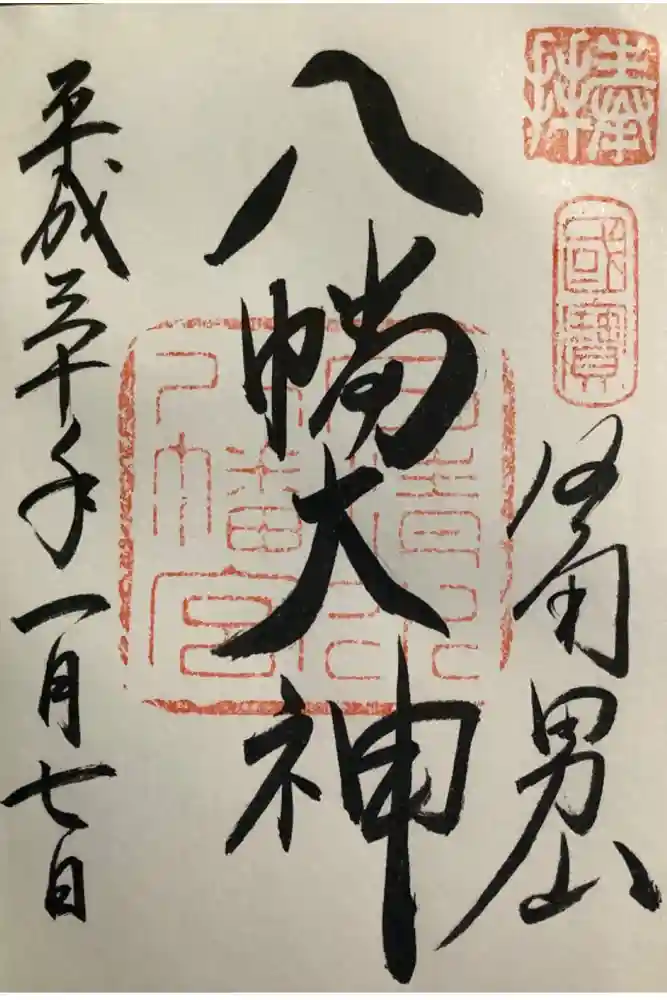 奉拝
國寶
石清水
八幡宮
男山
八幡大神
平成三十年一月七日